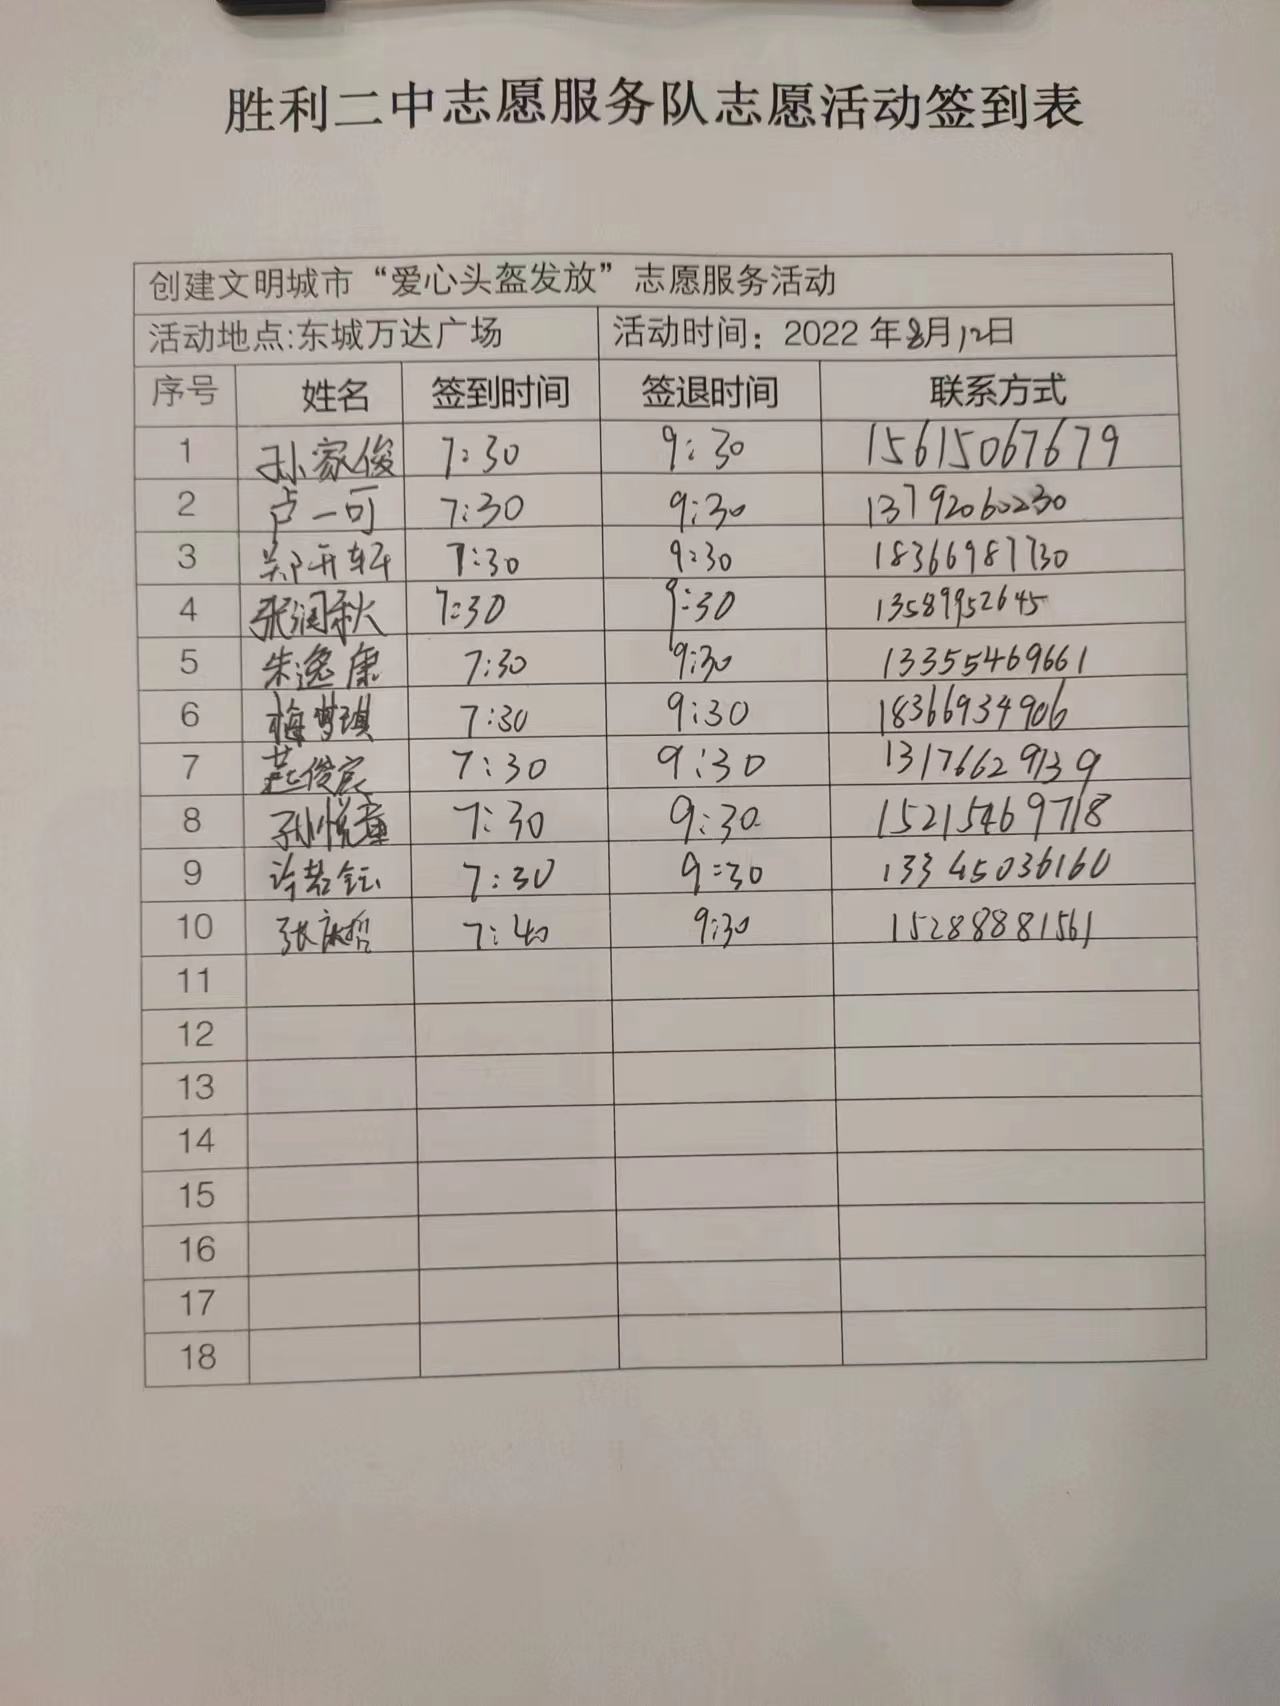 胜利二中志愿服务队志愿活动签到表
创建文明城市“爱心头盔发放”志愿服务活动
活动地点:东城万达广场 活动时间：2022年8月12日
序号 姓名 签到时间 签退时间 联系方式
1 孙家俊 7:30 9:30 15615067679
2 卢一可 7:30 9:30 13792060230
3 郑开轩 7:30 9:30 18366987730
4 张润秋 7:30 9:30 13589952645
5 朱逸康 7:30 9:30 13355469661
6 梅梦琪 7:30 9:30 18366934906
7 俊宸 7:30 9:30 13176629139
8 孙悦童 7:30 9:30 15215469718
9 许若钰 7:30 9:30 13345036160
10 张哲 7:40 9:30 15288881561
11
12
13
14
15
16
17
18